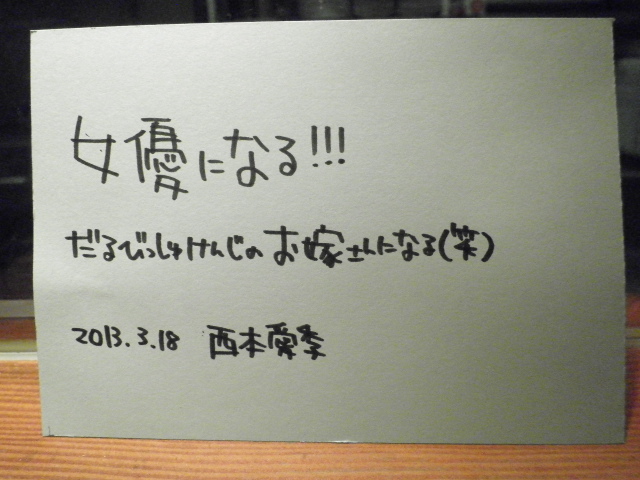 女優になる!!!
だるびっしゅけんじの お嫁さんになる(笑)
2013.3.18 西本愛季